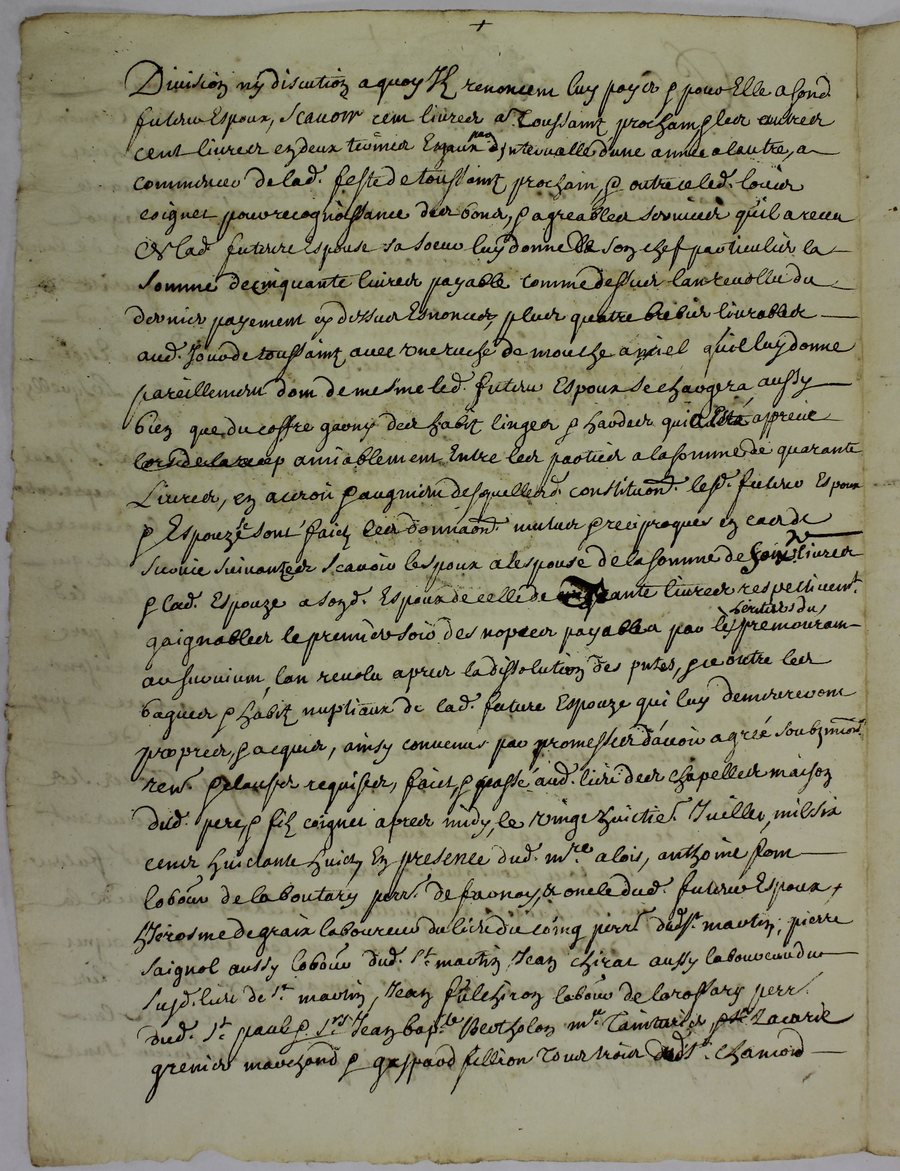 +
Division ny discution a quoy Ilz renoncent luy payer & pour Elle a sond.
futeur Espoux, scavoir cent livres a Toussaint prochain, & les autres
cent livres en deux termes Egaux d'intervalle d'une année a lautre, a
commencer de lad. feste de toussaint prochain, & outre ce led. 
coignet pour recognoissance des bons, & agreables services qu'il a receu
de lad. future Espouse sa soeur luy donne de son chef particulier la
somme de cinquante livres payable comme dessus lan revollu du
dernier payement cy dessus Enoncé, plus quatre brebis livrables
aud. Jour de toussaint avec une ruche de mouche a miel qu'il luy donne
pareillement dont de mesme led. futeur Espoux se chargera aussy
bien que du coffre garny des habitz linges & hardes qui apretié
amiablement Entre les parties a la somme de quarante
Livres, en auroit & augment desquelles constitutions. lesd. futeur Espoux
& Espouze se sont faict les donnaons. mutues & reciproques en cas de
survie suivantes scavoir lespoux a lespouse de la somme de livres
& lad. Espouze a sond. Espoux de celle de livres respectivemt.
gaignables le premier soir des nopces payables par les heritiers du premourant
au survivant, lan revolu apres la dissolution des pntes, & ce outre les
bagues & habitz nuptiaux de lad. future Espouze qui luy demeureront
propres & acquis, ainsy convenus par promesses d'avoir agreé soubzmions
ren. & clauses requises, faict, & passé aud. lieu des chapelles maison
dud. pere & filz coignet apres midy, le vingt huictie. Juillet, mil six
cents huictante huict, En presence dud. mre. alois, anthoine 
labour. de la boutary parr. de farnay, & oncle dud. futeur Espoux,
hierosme degraix laboureur du lieu du coing parr. dud. St. martin, pierre
saignol aussy labour. dud. St. martin, Jean chirat aussy laboureur du
susd. lieu de St. martin, Jean fulchiron labour. de larossary parr.
dud. St. paul & srs. Jean bapte. Bertholon me. Zacarie
grenier marchand & gaspard fillion dud. St. chamond